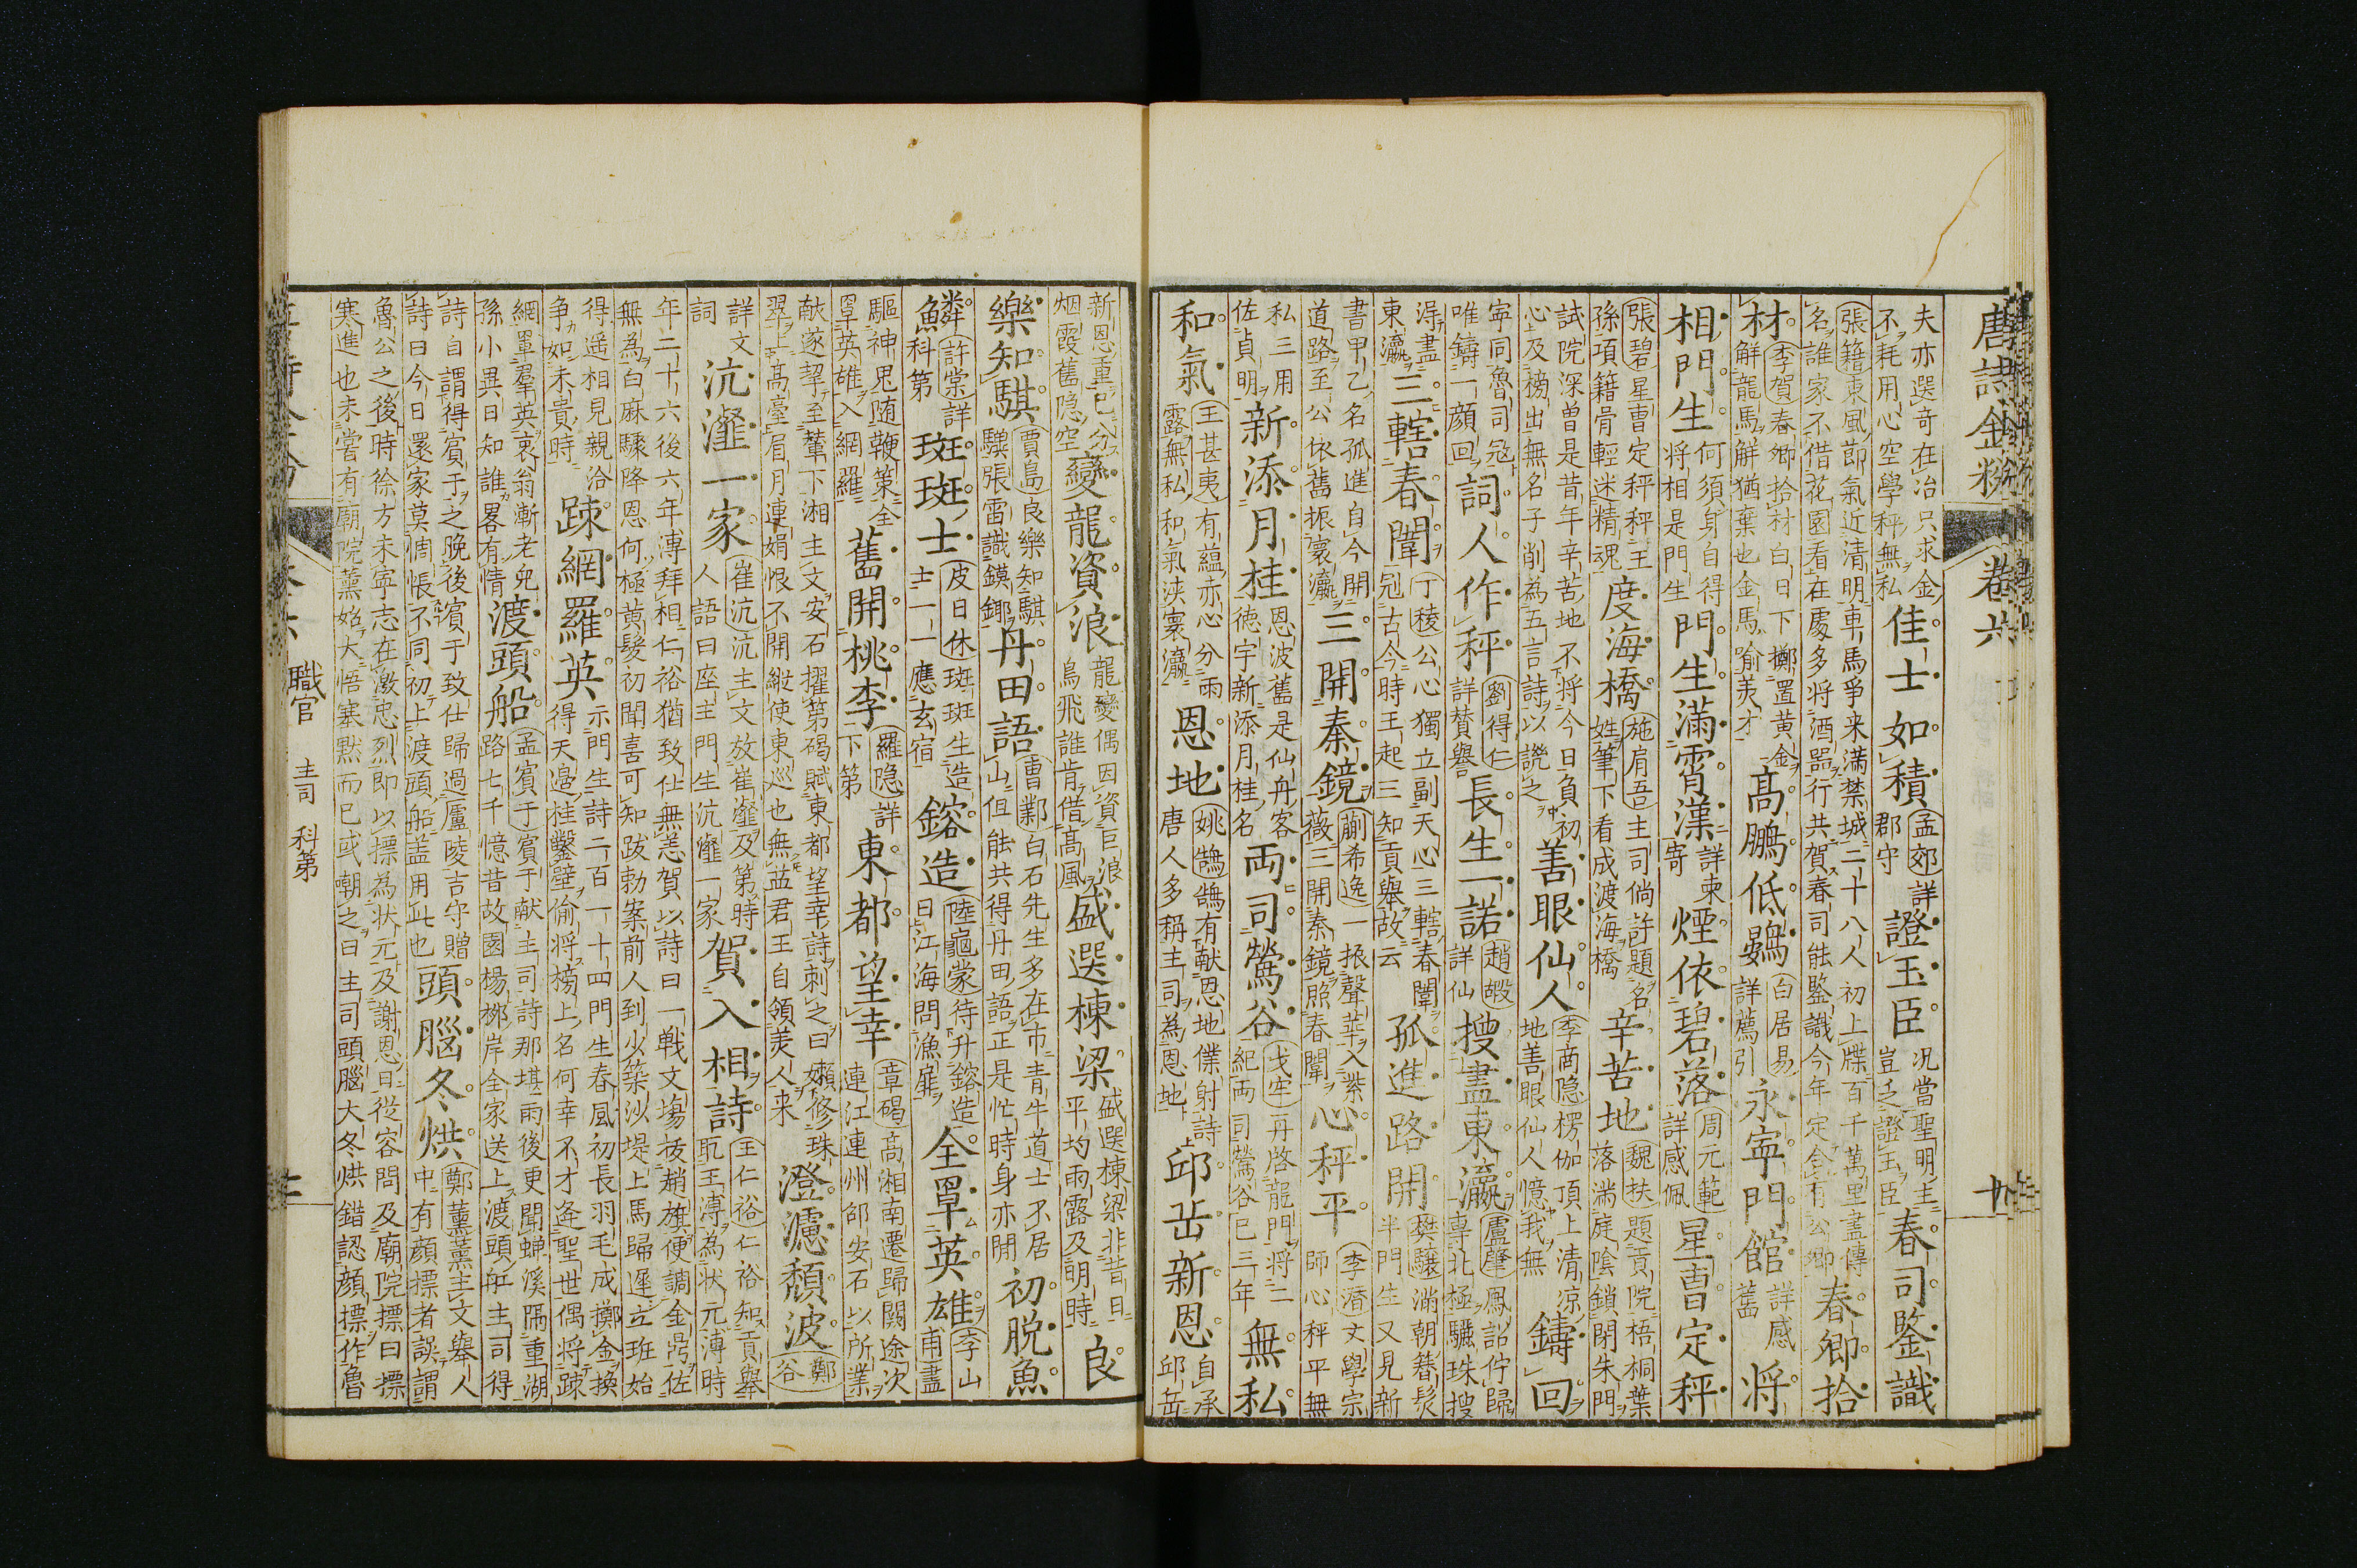 唐詩金粉 卷六
夫亦選奇在冶只求金
不耗用心空學秤無私
佳士如積
孟郊詳
郡守
證玉臣
况當聖明主
豈乏證玉臣
春司鑒識
張籍東風節氣近清明車馬爭来滿禁城二十八人初上牒百千萬里盡傳
名誰家不借花園看在處多将酒器行共賀春司能鑒識今年定合有公卿
春卿拾
材
李賀春卿拾材白日下擲置黄金
解龍馬解猶棄也金馬喻美才
高鵬低鷃
白居易
詳薦引
永寧門館
詳感
舊
将
相門生
何須身自得
将相是門生
門生滿霄漢
詳柬
寄
煙依碧落
周元範
詳感佩
星曺定秤
張碧星曺定秤秤王
孫項籍骨輕迷精魂
度海橋
施肩吾主司倘許題名
姓筆下看成渡海橋
辛苦地
魏扶題貢院梧桐葉
落滿庭陰鎖閉朱門
試院深曽是昔年辛苦地不将今日負初
心及榜出無名子削為五言詩以譏之
善眼仙人
李商隐楞伽頂上清凉
地善眼仙人憶我無
鑄回
寜同魯司冦
唯鑄一顔回
詞人作秤
劉得仁
詳賛譽
長生一諾
趙嘏
詳仙
搜盡東瀛
盧肇鳳詔佇歸
專北極驪珠搜
淂盡
東瀛
三轄春闈
丁稜公心獨立副天心三轄春闈
冠古今時王起三知貢舉故云
孤進路開
樊驤滿朝簪髪
半門生又見新
書甲乙名孤進自今開
道路至公依舊振寰瀛
三開秦鏡
蒯希逸一振聲華入紫
薇三開秦鏡照春闈
心秤平
李潘文學宗
師心秤平無
私三用
佐貞明
新添月桂
恩波舊是仙舟客
徳宇新添月桂名
両司鶯谷
戈牢一丹啓龍門将二
紀両司鶯谷已三年
無私
和氣
王甚夷有蘊赤心分雨
露無私和氣浹寰瀛
恩地
姚鵠鵠有献恩地僕射詩
唐人多稱主司為恩地
邱岳新恩
自承
邱岳
新恩重已分
烟霞舊隐空
變龍資浪
龍變偶因資巨浪
鳥飛誰肯借高風
盛選棟梁
盛選棟梁非昔日
平均雨露及明時
良
樂知騏
賈島良樂知騏
驥張雷識鏌鎁
丹田語
曺鄴白石先生多在市青牛道士不居
山但能共得丹田語正是忙時身亦閒
初脱魚
鱗
許棠詳
科第
斑斑士
皮日休斑斑生造
士一一應玄宿
鎔造
陸龜蒙待升鎔造
日江海問漁扉
全罩英雄
李山
甫盡
驅神鬼随鞭策全
罩英雄入網羅
舊開桃李
羅隐詳
下第
東都望幸
章碣高湘南遷歸闕途次
連江連州邵安石以所業
献遂挈至輦下湘主文安石擢第碣賦東都望幸詩刺之曰嬾修珠
翠上高臺眉月連娟恨不開縱使東巡也無益君王自領美人来
澄濾頽波
鄭
谷
詳文
詞
沆瀣一家
崔沆沆主文放崔瀣及第時
人語曰座主門生沆瀣一家
賀入相詩
王仁裕仁裕知貢舉
取王溥為状元溥時
年二十六後六年溥拜相仁裕猶致仕無恙賀以詩曰一戦文塲抜趙旗便調金鼎佐
無為白麻驟降恩何極黄髪初聞喜可知跋勅案前人到少築沙堤上馬歸遲立班始
得遥相見親洽
爭如未貴時
踈網羅英
示門生詩二百一十四門生春風初長羽毛成擲金換
得天邉桂鑿壁偷将榜上名何幸不才逢聖世偶将踈
網罩羣英衰翁漸老児
孫小異日知誰畧有情
渡頭船
孟賓于賓于献主司詩那堪雨後更聞蝉溪隔重湖
路七千憶昔故園楊栁岸全家送上渡頭舡主司得
詩自謂得賓于之晚後賓于致仕歸過廬陵吉守贈
詩曰今日還家莫惆悵不同初上渡頭船盖用此也
頭腦冬烘
鄭薰薰主文舉人
中有顔摽者誤謂
魯公之後時徐方未寧志在激忠烈即以摽為状元及謝恩日從容問及廟院摽曰摽
寒進也未嘗有廟院薰始大悟塞默而已或嘲之曰主司頭腦大冬烘錯認顔摽作魯
職官 主司 科第